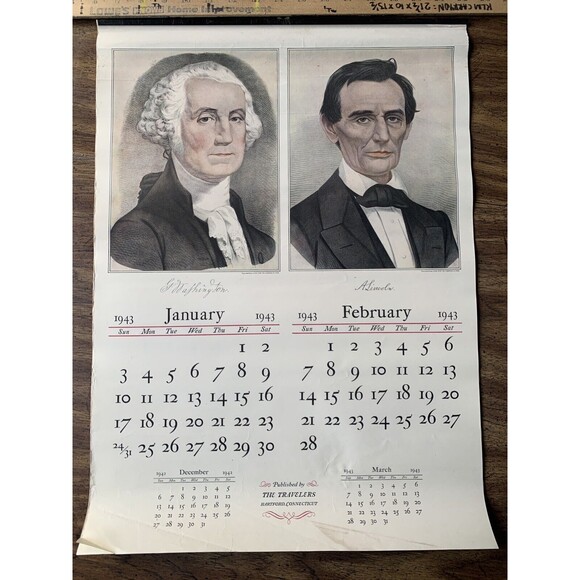 Lowe's Home Improvement
KLM CARTON: 21½ x 10 x 75½
G Washington
A. Lincoln.
1943 January 1943
Sun Mon Tue Wed Thu Fri Sat
1 2
3 4 5 6 7 8 9
10 11 12 13 14 15 16
17 18 19 20 21 22 23
24/31 25 26 27 28 29 30
1943 February 1943
Sun Mon Tue Wed Thu Fri Sat
1 2 3 4 5 6
7 8 9 10 11 12 13
14 15 16 17 18 19 20
21 22 23 24 25 26 27
28
1942 December 1942
Sun Mon Tue Wed Thu Fri Sat
1 2 3 4 5
6 7 8 9 10 11 12
13 14 15 16 17 18 19
20 21 22 23 24 25 26
27 28 29 30 31
Published by
THE TRAVELERS
HARTFORD, CONNECTICUT
1943 March 1943
Sun Mon Tue Wed Thu Fri Sat
1 2 3 4 5 6
7 8 9 10 11 12 13
14 15 16 17 18 19 20
21 22 23 24 25 26 27
28 29 30 31